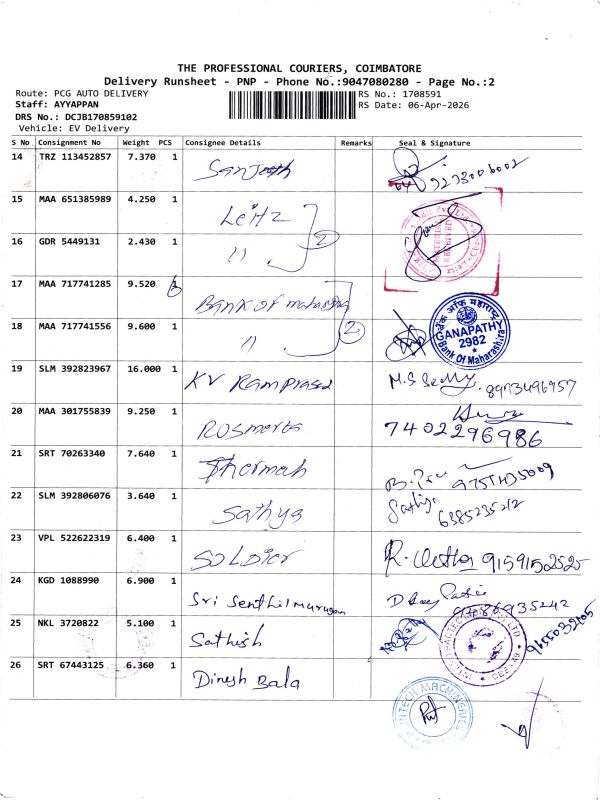 THE PROFESSIONAL COURIERS, COIMBATORE
Delivery Runsheet - PNP - Phone No.:9047080280 - Page No.:2
Route: PCG AUTO DELIVERY
RS No.: 1708591
Staff: AYYAPPAN
RS Date: 06-Apr-2026
DRS No.: DCJB170859102
Vehicle: EV Delivery
S No Consignment No Weight PCS Consignee Details Remarks Seal & Signature
14 TRZ 113452857 7.370 1 Sanjeeth
15 MAA 651385989 4.250 1 Leitz
16 GDR 5449131 2.430 1 11 2
17 MAA 717741285 9.520 1 Bank of maharashtra
18 MAA 717741556 9.600 1 11 2
GANAPATHY
2982
Bank Of Maharashtra
19 SLM 392823967 16.000 1 KV Ramprasad M.S Reddy. 8973496957
20 MAA 301755839 9.250 1 Rosmerta 7402296986
21 SRT 70263340 7.640 1 Thermah
22 SLM 392806076 3.640 1 Sathya Sathiya 6385235212
23 VPL 522622319 6.400 1 SOLDier 9159152525
24 KGD 1088990 6.900 1 Sri Senthil murugan
25 NKL 3720822 5.100 1 Sathish
26 SRT 67443125 6.360 1 Dinesh Bala
INTECH MACHINERIES